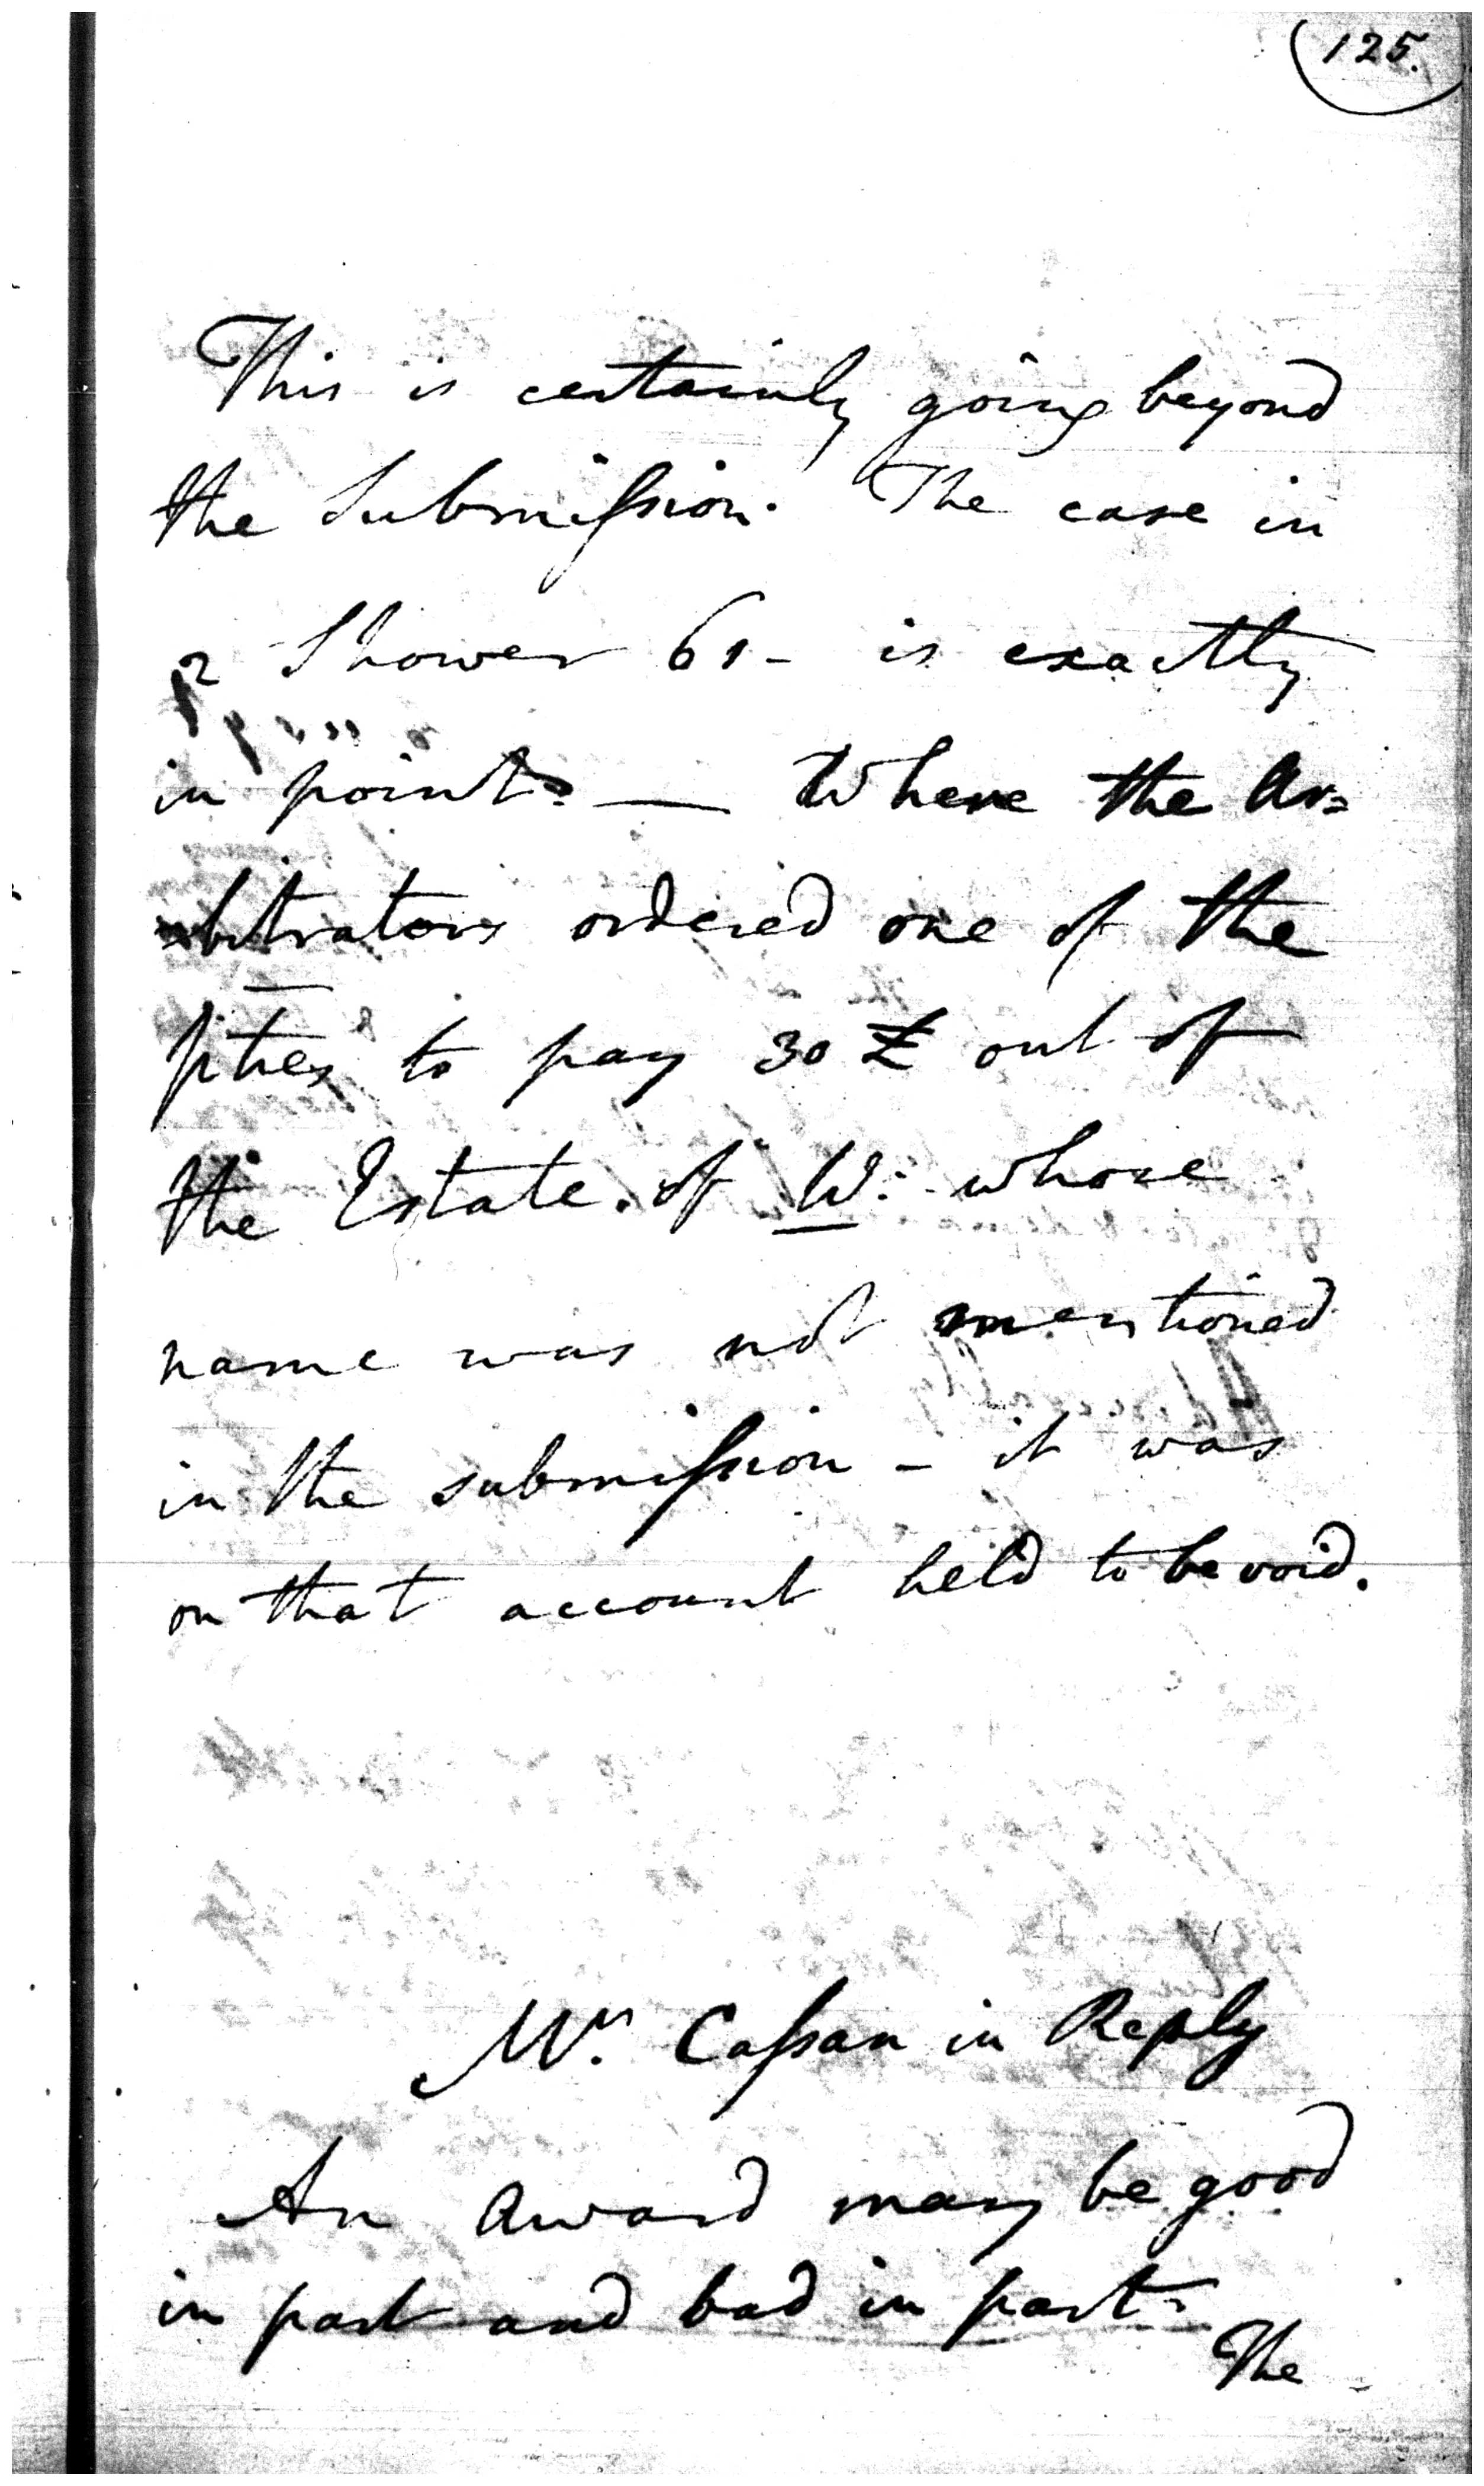 125.
This is certainly going beyond
the Submiſsion. The case in
2 Shower 61 - is exactly
in point. — Where the Ar=
=bitrators ordered one of the
pties to pay 30 £ out of
the Estate of W. whose
name was not mentioned
in the submiſsion - it was
on that account held to be void.
Mr. Caſsan in Reply
An Award may be good
in part and bad in part.
The